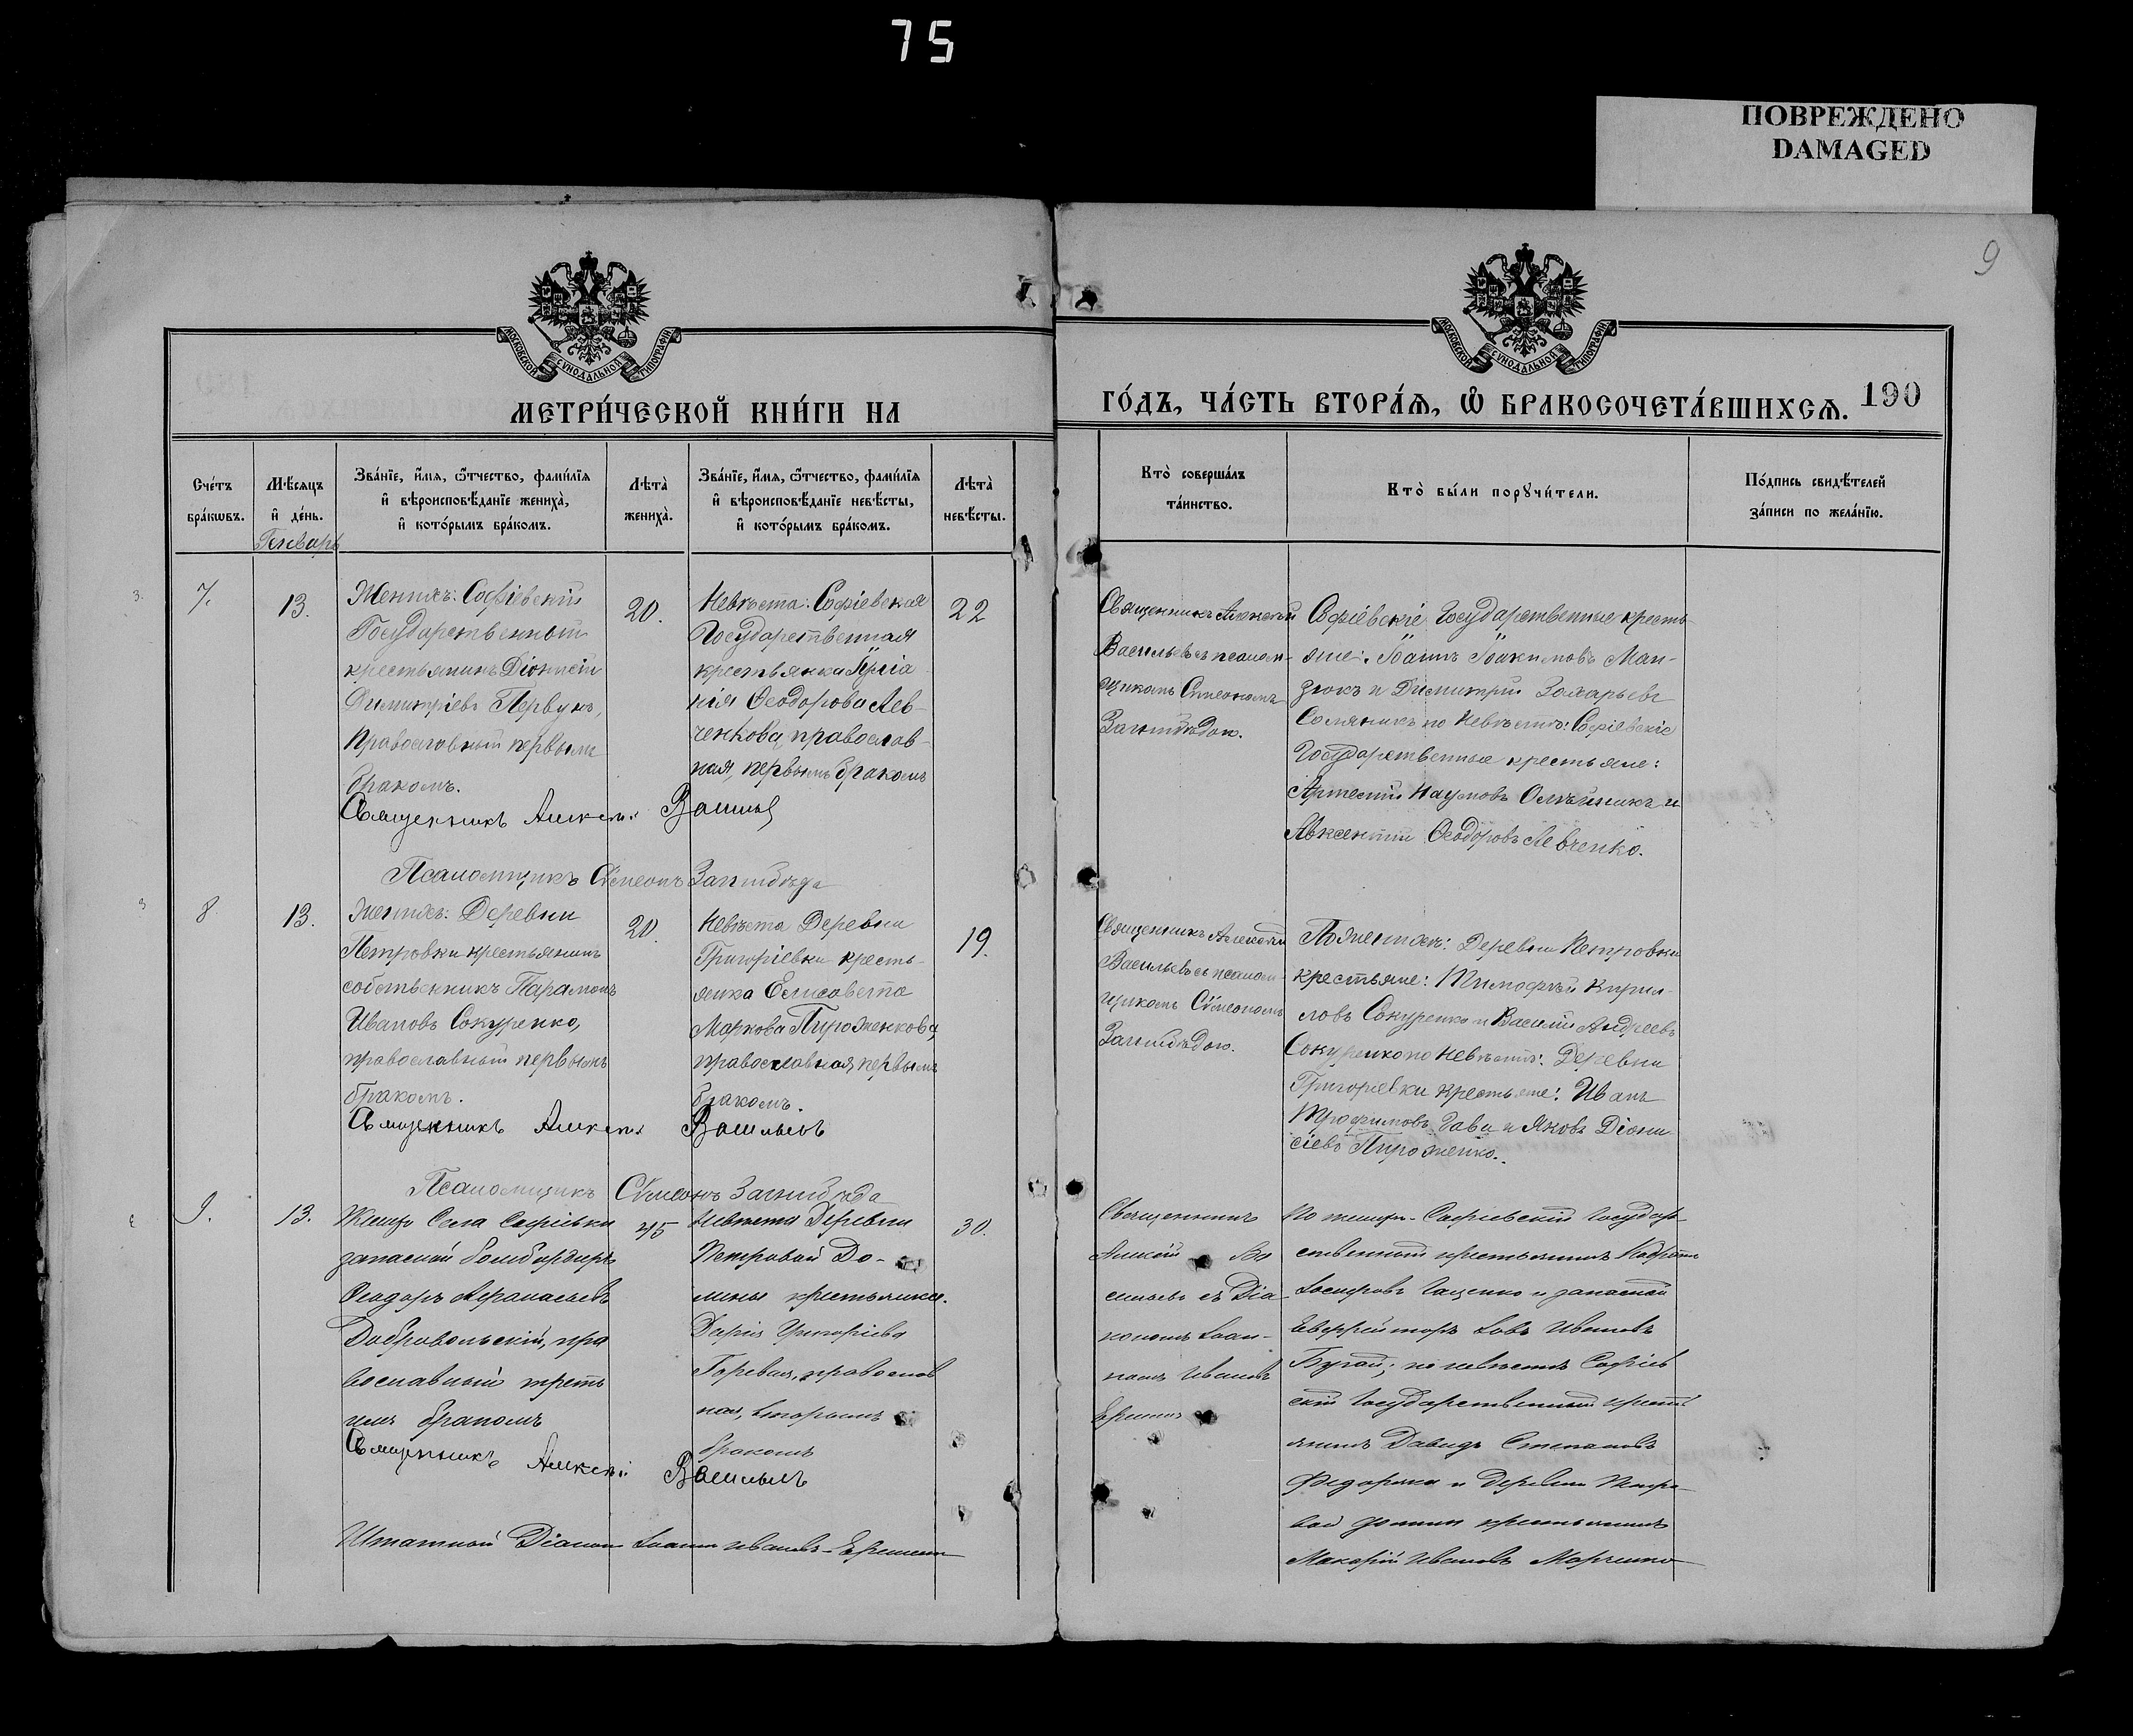 75
ПОВРЕЖДЕНО
DAMAGED
9
МОСКОВСКОЙ СѴНОДАЛЬНОЙ ТИПОГРАФІИ
МОСКОВСКОЙ СѴНОДАЛЬНОЙ ТИПОГРАФІИ
МЕТРИ́ЧЕСКОЙ КНИ́ГИ НА
ГО́ДЪ, ЧА́СТЬ ВТОРА́Я, Ѽ БРАКОСОЧЕТА́ВШИХСЯ.
190
Сче́тъ бра́кѡвъ.
Мѣ́сяцъ и҆ де́нь.
Зва́нїе, и҆́мя, ѻ҆́тчество, фами́лїя
и҆ вѣроисповѣ́данїе жениха̀,
и҆ кото́рымъ бра́комъ.
Лѣта̀ жениха̀.
Зва́нїе, и҆́мя, ѻ҆́тчество, фами́лїя
и҆ вѣроисповѣ́данїе невѣ́сты,
и҆ кото́рымъ бра́комъ.
Лѣта̀ невѣ́сты.
Кто̀ соверша́лъ та́инство.
Кто̀ бы́ли порꙋчи́тели.
По́дпись свидѣ́телей
за́писи по жела́нїю.
Генварь
7.
13.
Женихъ: Софіевскій
Государственный
крестьянинъ Діонисій
Димитріевъ Первунъ,
Православный первымъ
бракомъ.
20.
Невѣста: Софіевская
Государственная
крестьянка
Ѳеодорова Лев-
ченкова, православ-
ная, первымъ бракомъ
22
Священникъ Алексѣй
Васильевъ съ псалом-
щикомъ Симеономъ
Загнибѣдою.
Софіевскіе Государственные кресть-
яне: Іоаннъ Іоакимовъ Ман-
зюкъ и Димитрій Захарьевъ
по Невѣстѣ: Софіевскіе
Государственные крестьяне:
Артемій Наумовъ Олѣйникъ и
Авксентій Ѳеодоровъ Левченко.
Священникъ Алексѣй Васильевъ
Псаломщикъ Сѵмеонъ Загнибѣда
8.
13.
Женихъ: Деревни
Петровки крестьянинъ
собственникъ Парамонъ
Ивановъ Сокуренко,
православный первымъ
бракомъ.
20.
Невѣста Деревни
Григоріевки кресть-
янка Елисавета
Маркова Пироженкова,
православная, первымъ
бракомъ.
19.
Священникъ Алексѣй
Васильевъ съ псалом-
щикомъ Сѵмеономъ
Загнибѣдою.
По женихѣ: Деревни Петровки
крестьяне: Тимофѣй Кирил-
ловъ Сокуренко и Василій Андреевъ
Сокуренко по Невѣстѣ: Деревни
Григорьевки крестьяне: Иванъ
Трофимовъ и Яковъ Діони-
сіевъ Пироженко.
Священникъ Алексѣй Васильевъ
Псаломщикъ Сѵмеонъ Загнибѣда
9.
13.
Женихъ Села Софіевки
запасной бомбардиръ
Ѳеодоръ Аѳанасьевъ
Добровольскій, пра
вославный треть
имъ бракомъ
45
Невѣста Деревни
Петровой До-
лины крестьянка
Дарія Григоріева
православ
ная, вторымъ
бракомъ
30.
Священникъ
Алексѣй Ва
сильевъ съ Діа
кономъ Іоан-
номъ Ивановъ
По женихѣ - Софіевскій Государ-
ственный крестьянинъ
и запасной
Ефрейторъ Іовъ Ивановъ
Бугай; по невѣстѣ Софіев
скій Государственный кресть
янинъ Давидъ Степановъ
и деревни Петро-
вой долины крестьянинъ
Макарій Ивановъ Марченко
Священникъ Алексѣй Васильевъ
Штатной Діаконъ Іоаннъ Ивановъ